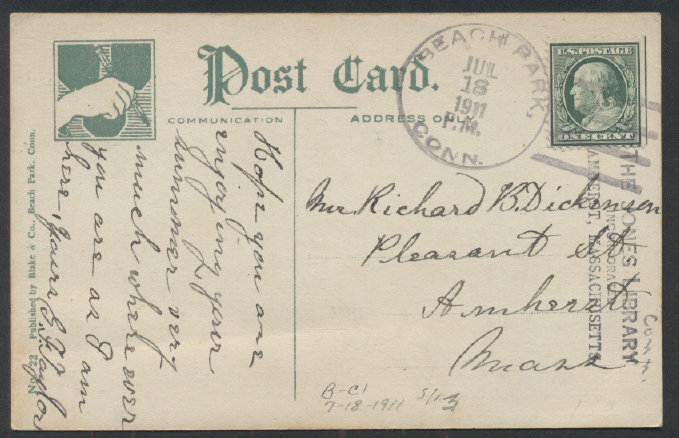 Post Card.
COMMUNICATION
ADDRESS ONLY
BEACH PARK,
JUL
18
1911
P.M.
CONN.
U.S. POSTAGE
ONE CENT
Hope you are
enjoying your
summer very
much where ever
you are as I am
here, Yours
Mr Richard B. Dickinson
Pleasant St
Amherst
Mass
THE JONES LIBRARY
INCORPORATED
AMHERST, MASSACHUSETTS
No. 22 Published by Blake & Co., Beach Park, Conn.
B-C1
7-18-1911